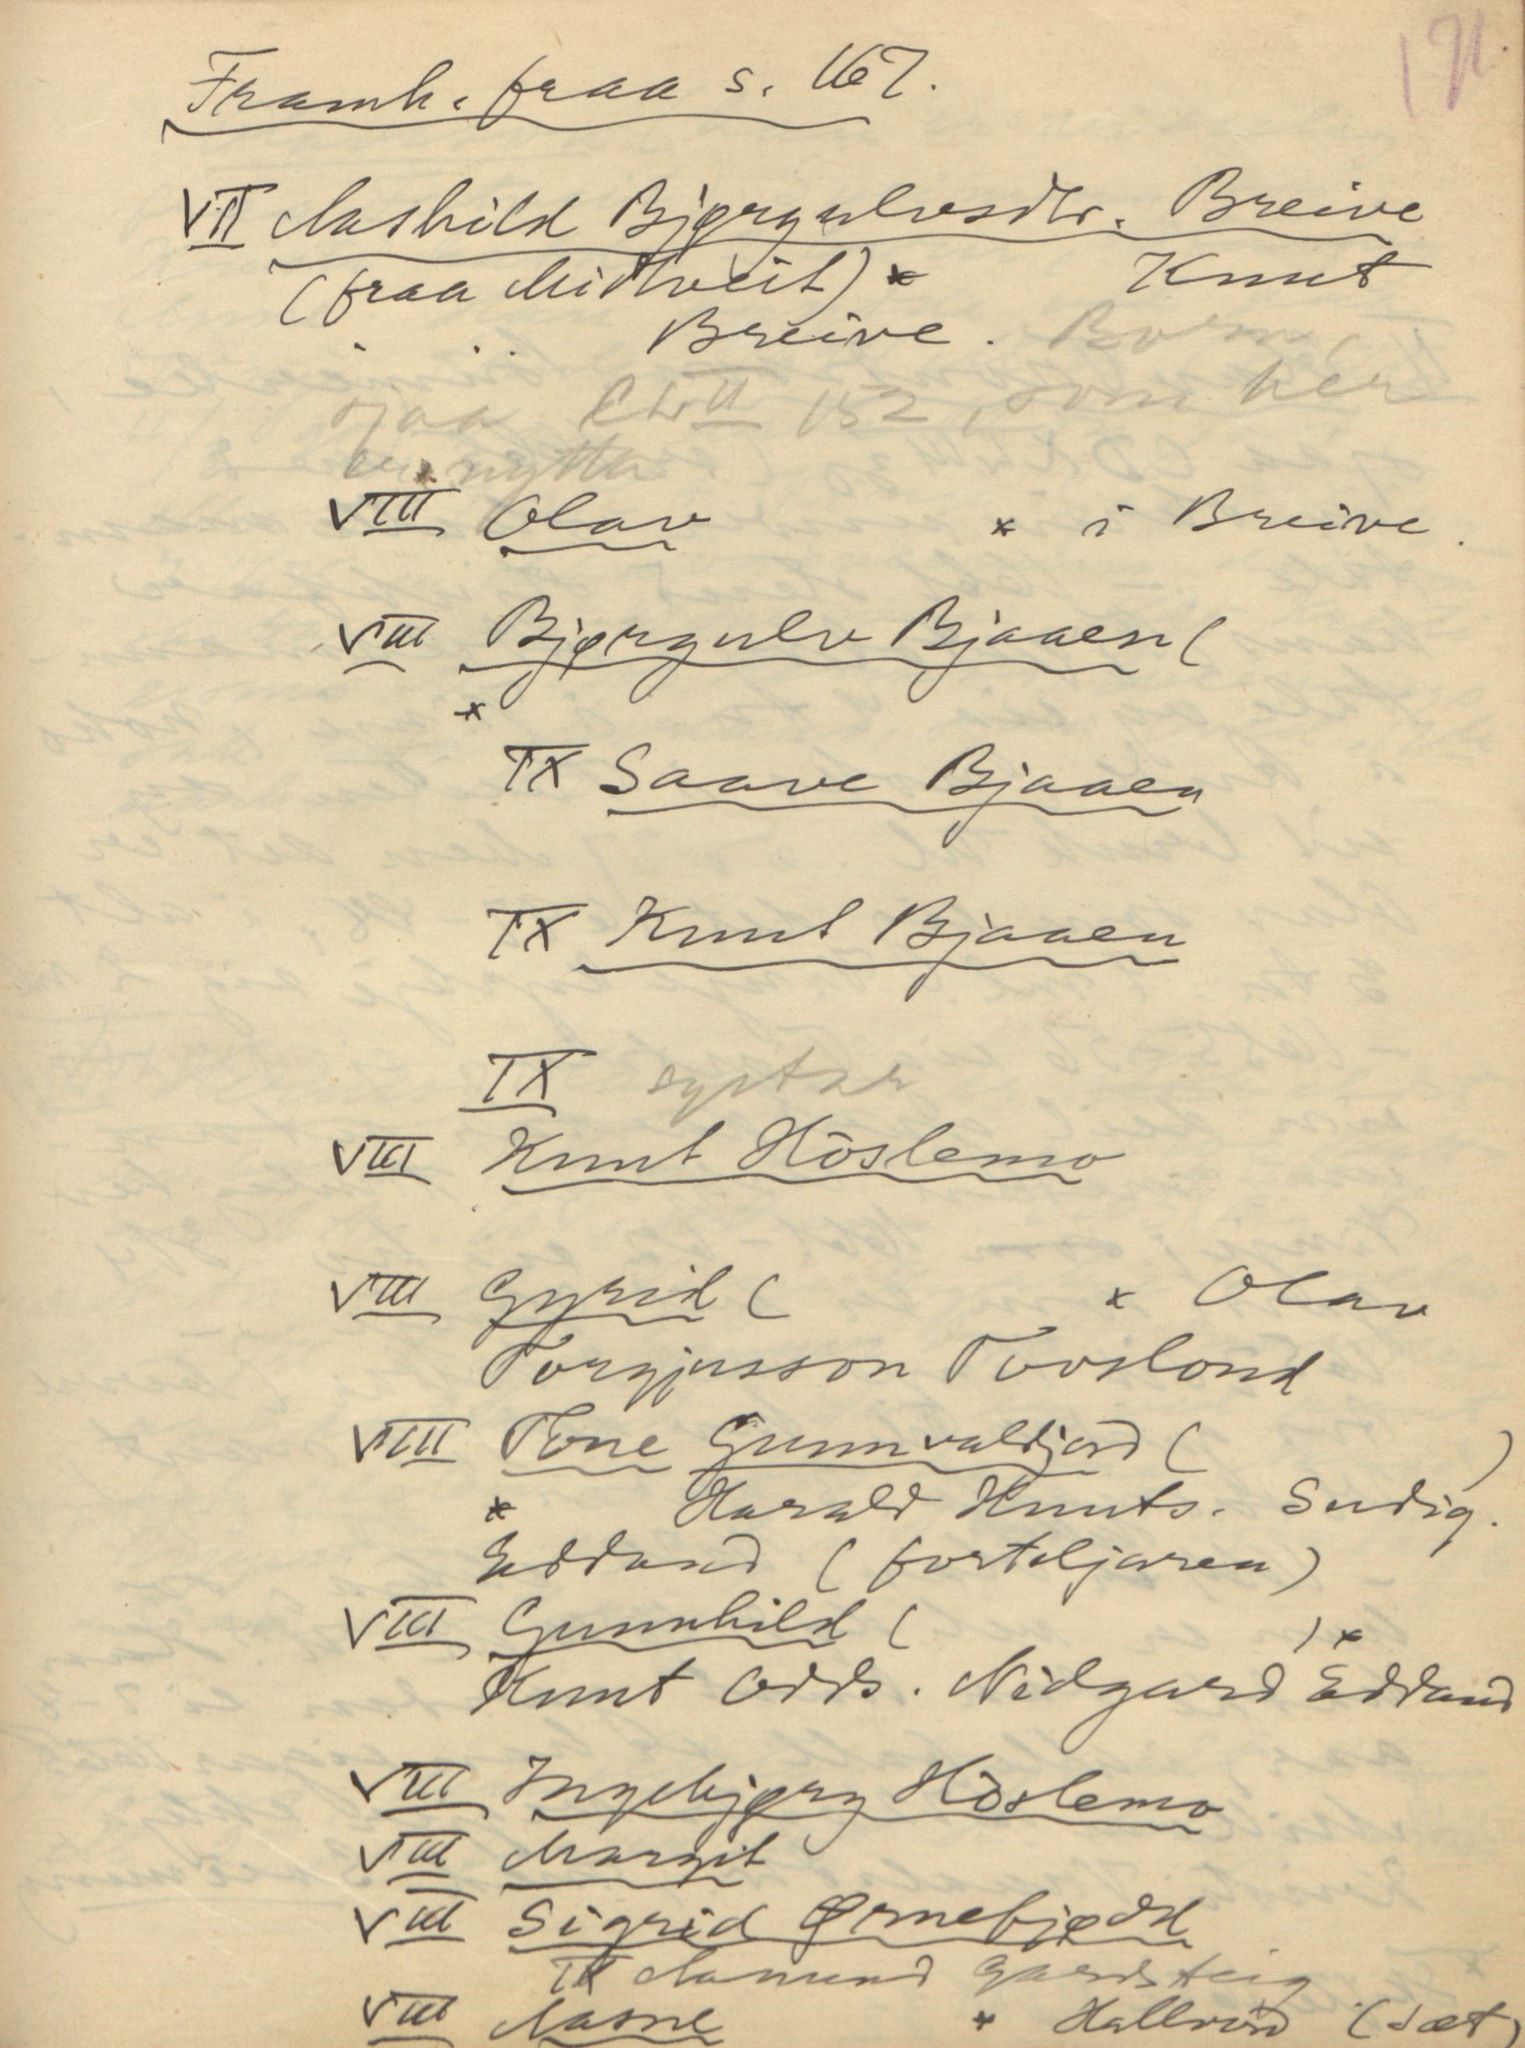 171.
Framh. fraa s. 167.
VII Aashild Bjørgulvsdtr. Breive
(fraa Midtveit) * Knut
Breive. Born,
sjaa EhrII 152, som her
er nytta
VIII Olav * i Breive.
VIII Bjørgulv Bjaaen (
*
IX Saave Bjaaen
IX Knut Bjaaen
IX systar
VIII Knut Hòslemo
VIII Gyrid ( * Olav
Torgjusson Tovslond
VIII Tone Gunnvaldjord ( )
* Harald Knuts. Sudig.
Eddand (forteljaren)
VIII Gunnhild ( ) *
Knut Odds. Nidgard Eddand
VIII Ingebjørg Hòslemo
VIII Margit
VIII Sigrid Ørnefjødd
IX Aamund Gardsteig
VIII Aasne * Hallvord (Sæt)